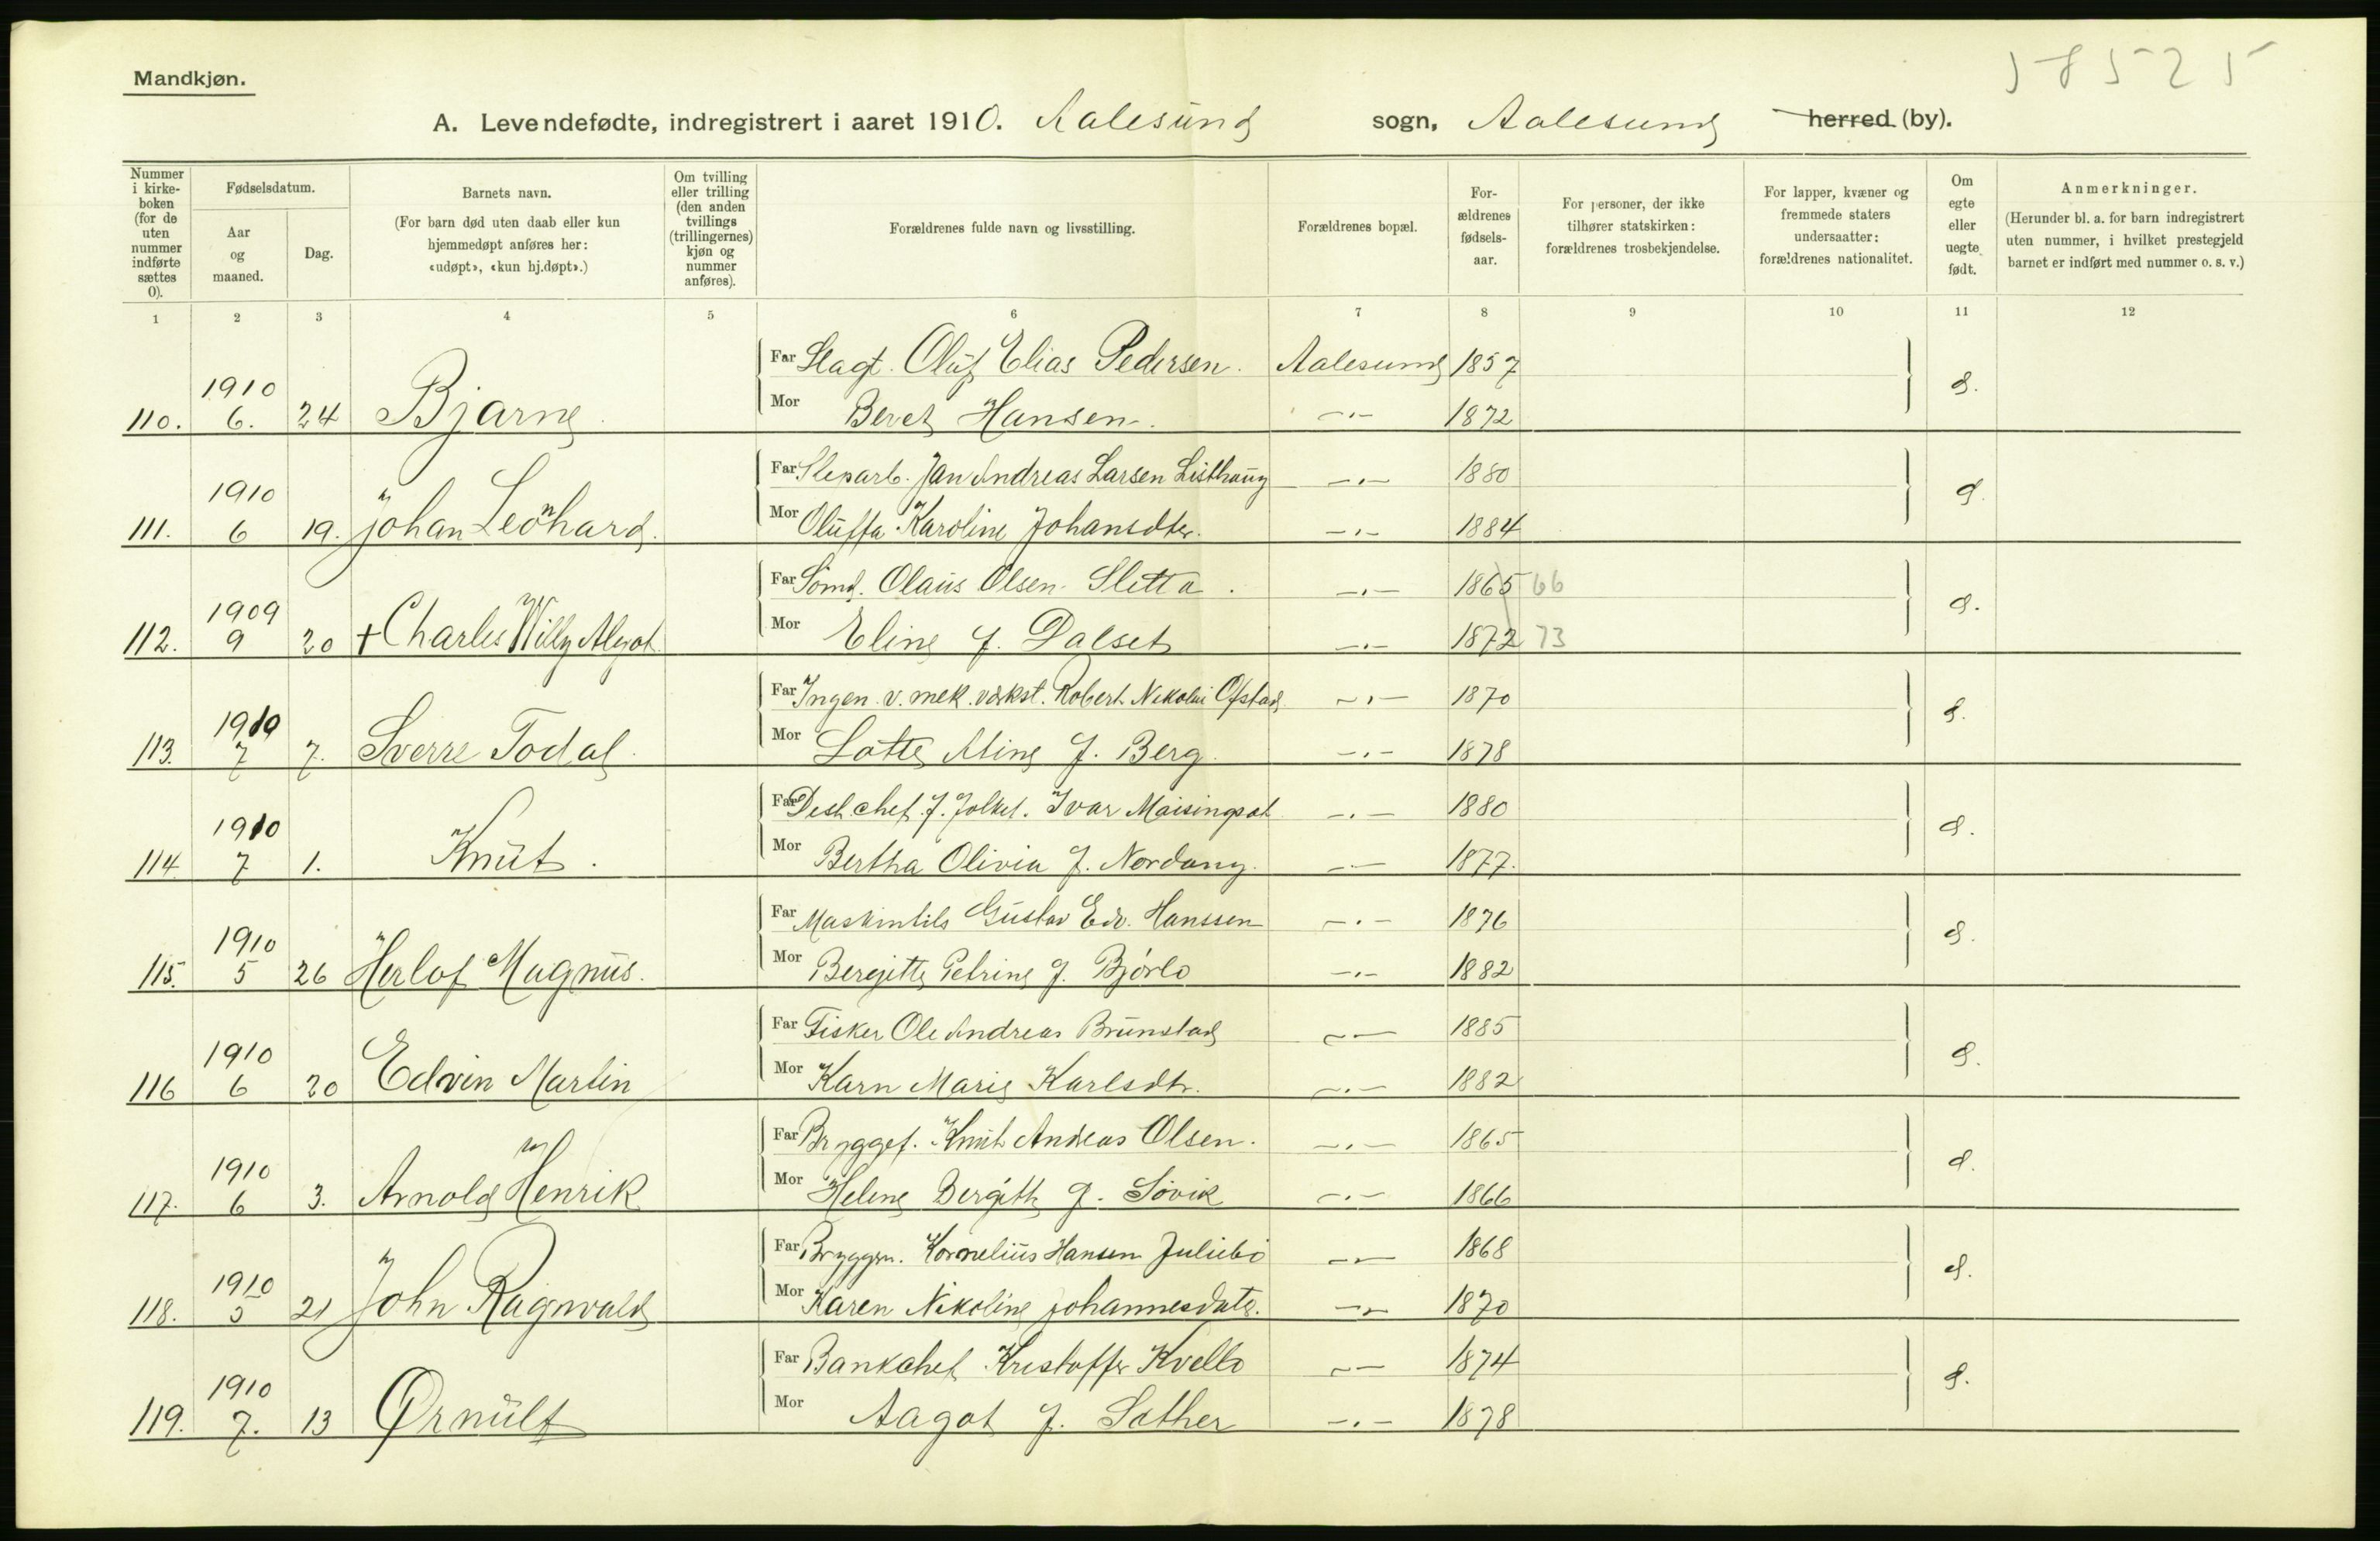 58525
Mandkjøn.
A. Levendefødte, indregistrert i aaret 1910. Aalesund sogn, Aalesund herred (by).
Nummer i kirke-boken (for de uten nummer indførte sættes 0).
Fødselsdatum.
Aar og maaned.
Dag.
Barnets navn.
(For barn død uten daab eller kun hjemmedøpt anføres her: «udøpt», «kun hj.døpt».)
Om tvilling eller trilling (den anden tvillings (trillingernes) kjøn og nummer anføres).
Forældrenes fulde navn og livsstilling.
Forældrenes bopæl.
For-ældrenes fødsels-aar.
For personer, der ikke tilhører statskirken: forældrenes trosbekjendelse.
For lapper, kvæner og fremmede staters undersaatter: forældrenes nationalitet.
Om egte eller uegte født.
Anmerkninger.
(Herunder bl. a. for barn indregistrert uten nummer, i hvilket prestegjeld barnet er indført med nummer o. s. v.)
1 2 3 4 5 6 7 8 9 10 11 12
Far Slagt. Oluf Elias Pedersen. Aalesund 1857
110. 1910 6. 24 Bjarne. Mor Beret Hansen. -"- 1872
Far Jan Andreas Larsen Listhaug -"- 1880
111. 1910 6 19. Johan Leonhard. Mor Oluffa Karoline Johansdtr. -"- 1884
Far Sømd. Olaus Olsen Sletta. -"- 1865 66
112. 1909 9 20 + Charles Willy Algot Mor Eline f. Dalset -"- 1872 73
Far Ingen. v. mek. værkst. Robert Nikolai Ofstad -"- 1870
113. 1910 7 7. Sverre Todal. Mor Lotte Aline f. Berg. -"- 1878
Far Ivar -"- 1880
114 1910 7 1. Knut. Mor Bertha Olivia f. Nordang. -"- 1877.
Far Gustav Edv. Hanssen -"- 1876
115. 1910 5 26 Herlof Magnus. Mor Bergitte Petrine f. Bjørlo -"- 1882
Far Fisker Ole Andreas Brunstad -"- 1885
116 1910 6 20 Edvin Martin Mor Karn Marie Karlsdtr. -"- 1882
Far Bryggef. Knut Andreas Olsen. -"- 1865
117. 1910 6 3. Arnold Henrik Mor Helene Bergitte f. Søvik -"- 1866
Far Bryggm. Kornelius Hansen Juliebø -"- 1868
118. 1910 5 21 John Ragnvald Mor Karen Nikoline Johannesdatr. -"- 1870
Far Bankchef Kristoffer Kvello -"- 1874
119. 1910 7. 13 Ørnulf Mor Aagot f. Sather -"- 1878